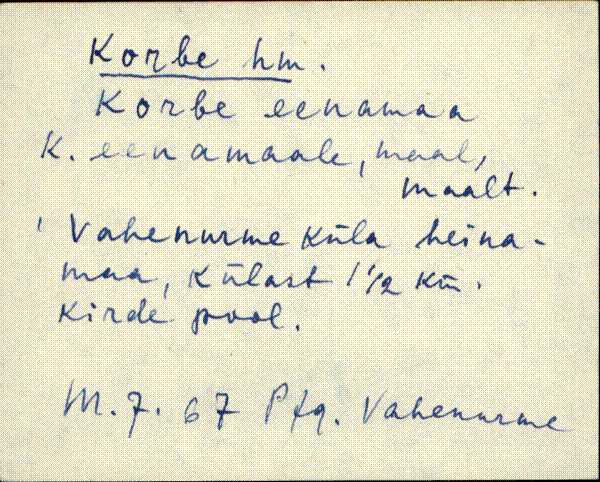 Korbe hm.
Korbe eenamaa
K. eenamaale, maal,
maalt.
' Vahenurme küla heina-
maa, külast 1 1/2 km.
kirde pool.
M. 7. 67 Vahenurme